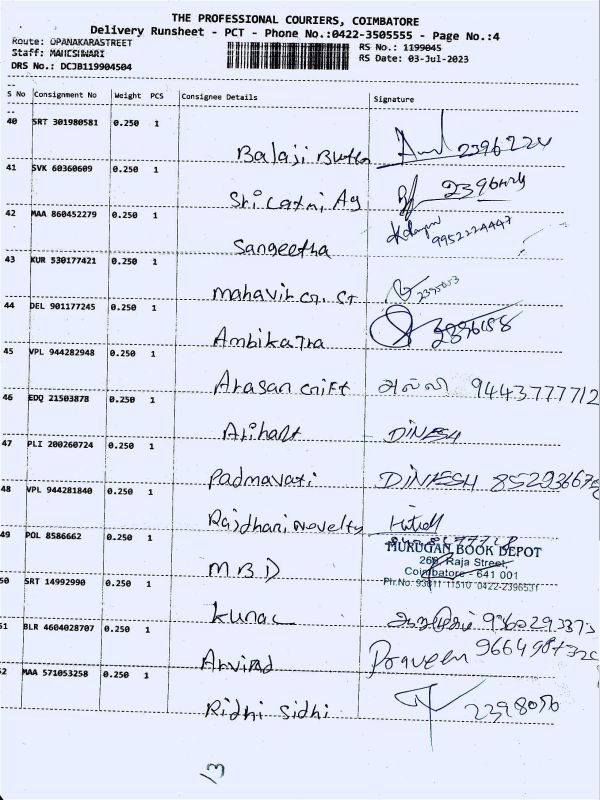 THE PROFESSIONAL COURIERS, COIMBATORE
Delivery Runsheet - PCT - Phone No.:0422-3505555 - Page No.:4
Route: OPANAKARASTREET
RS No.: 1199045
Staff: MAHESHWARI
RS Date: 03-Jul-2023
DRS No.: DCJB119904504
S No Consignment No Weight PCS Consignee Details Signature
40 SRT 301980581 0.250 1
Balaji 2396224
41 SVK 60360609 0.250 1
Sri Laxmi Ag
42 MAA 860452279 0.250 1
Sangeetha 9952224447
43 KUR 530177421 0.250 1
mahavir
44 DEL 901177245 0.250 1
Ambika
45 VPL 944282948 0.250 1
Arasan Gift 9443777712
46 EDQ 21503878 0.250 1
Arihant DINESH
47 PLI 200260724 0.250 1
Padmavati DINESH
48 VPL 944281840 0.250 1
Rajdhani Novelty
49 POL 8586662 0.250 1
MURUGAN BOOK DEPOT
Raja Street,
M B D Coimbatore - 641 001
0422-2396531
50 SRT 14992990 0.250 1
Kunal
51 BLR 4604028707 0.250 1
Arvind Praveen
52 MAA 571053258 0.250 1
Ridhi Sidhi